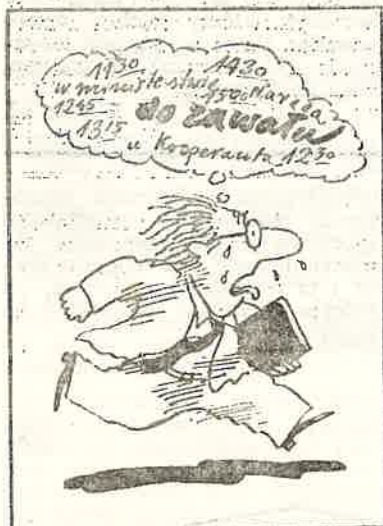 11 30 14 30
w ministerstwie 15 00 Narada
12 45 do zawału
13 15 u Kooperanta 12 30